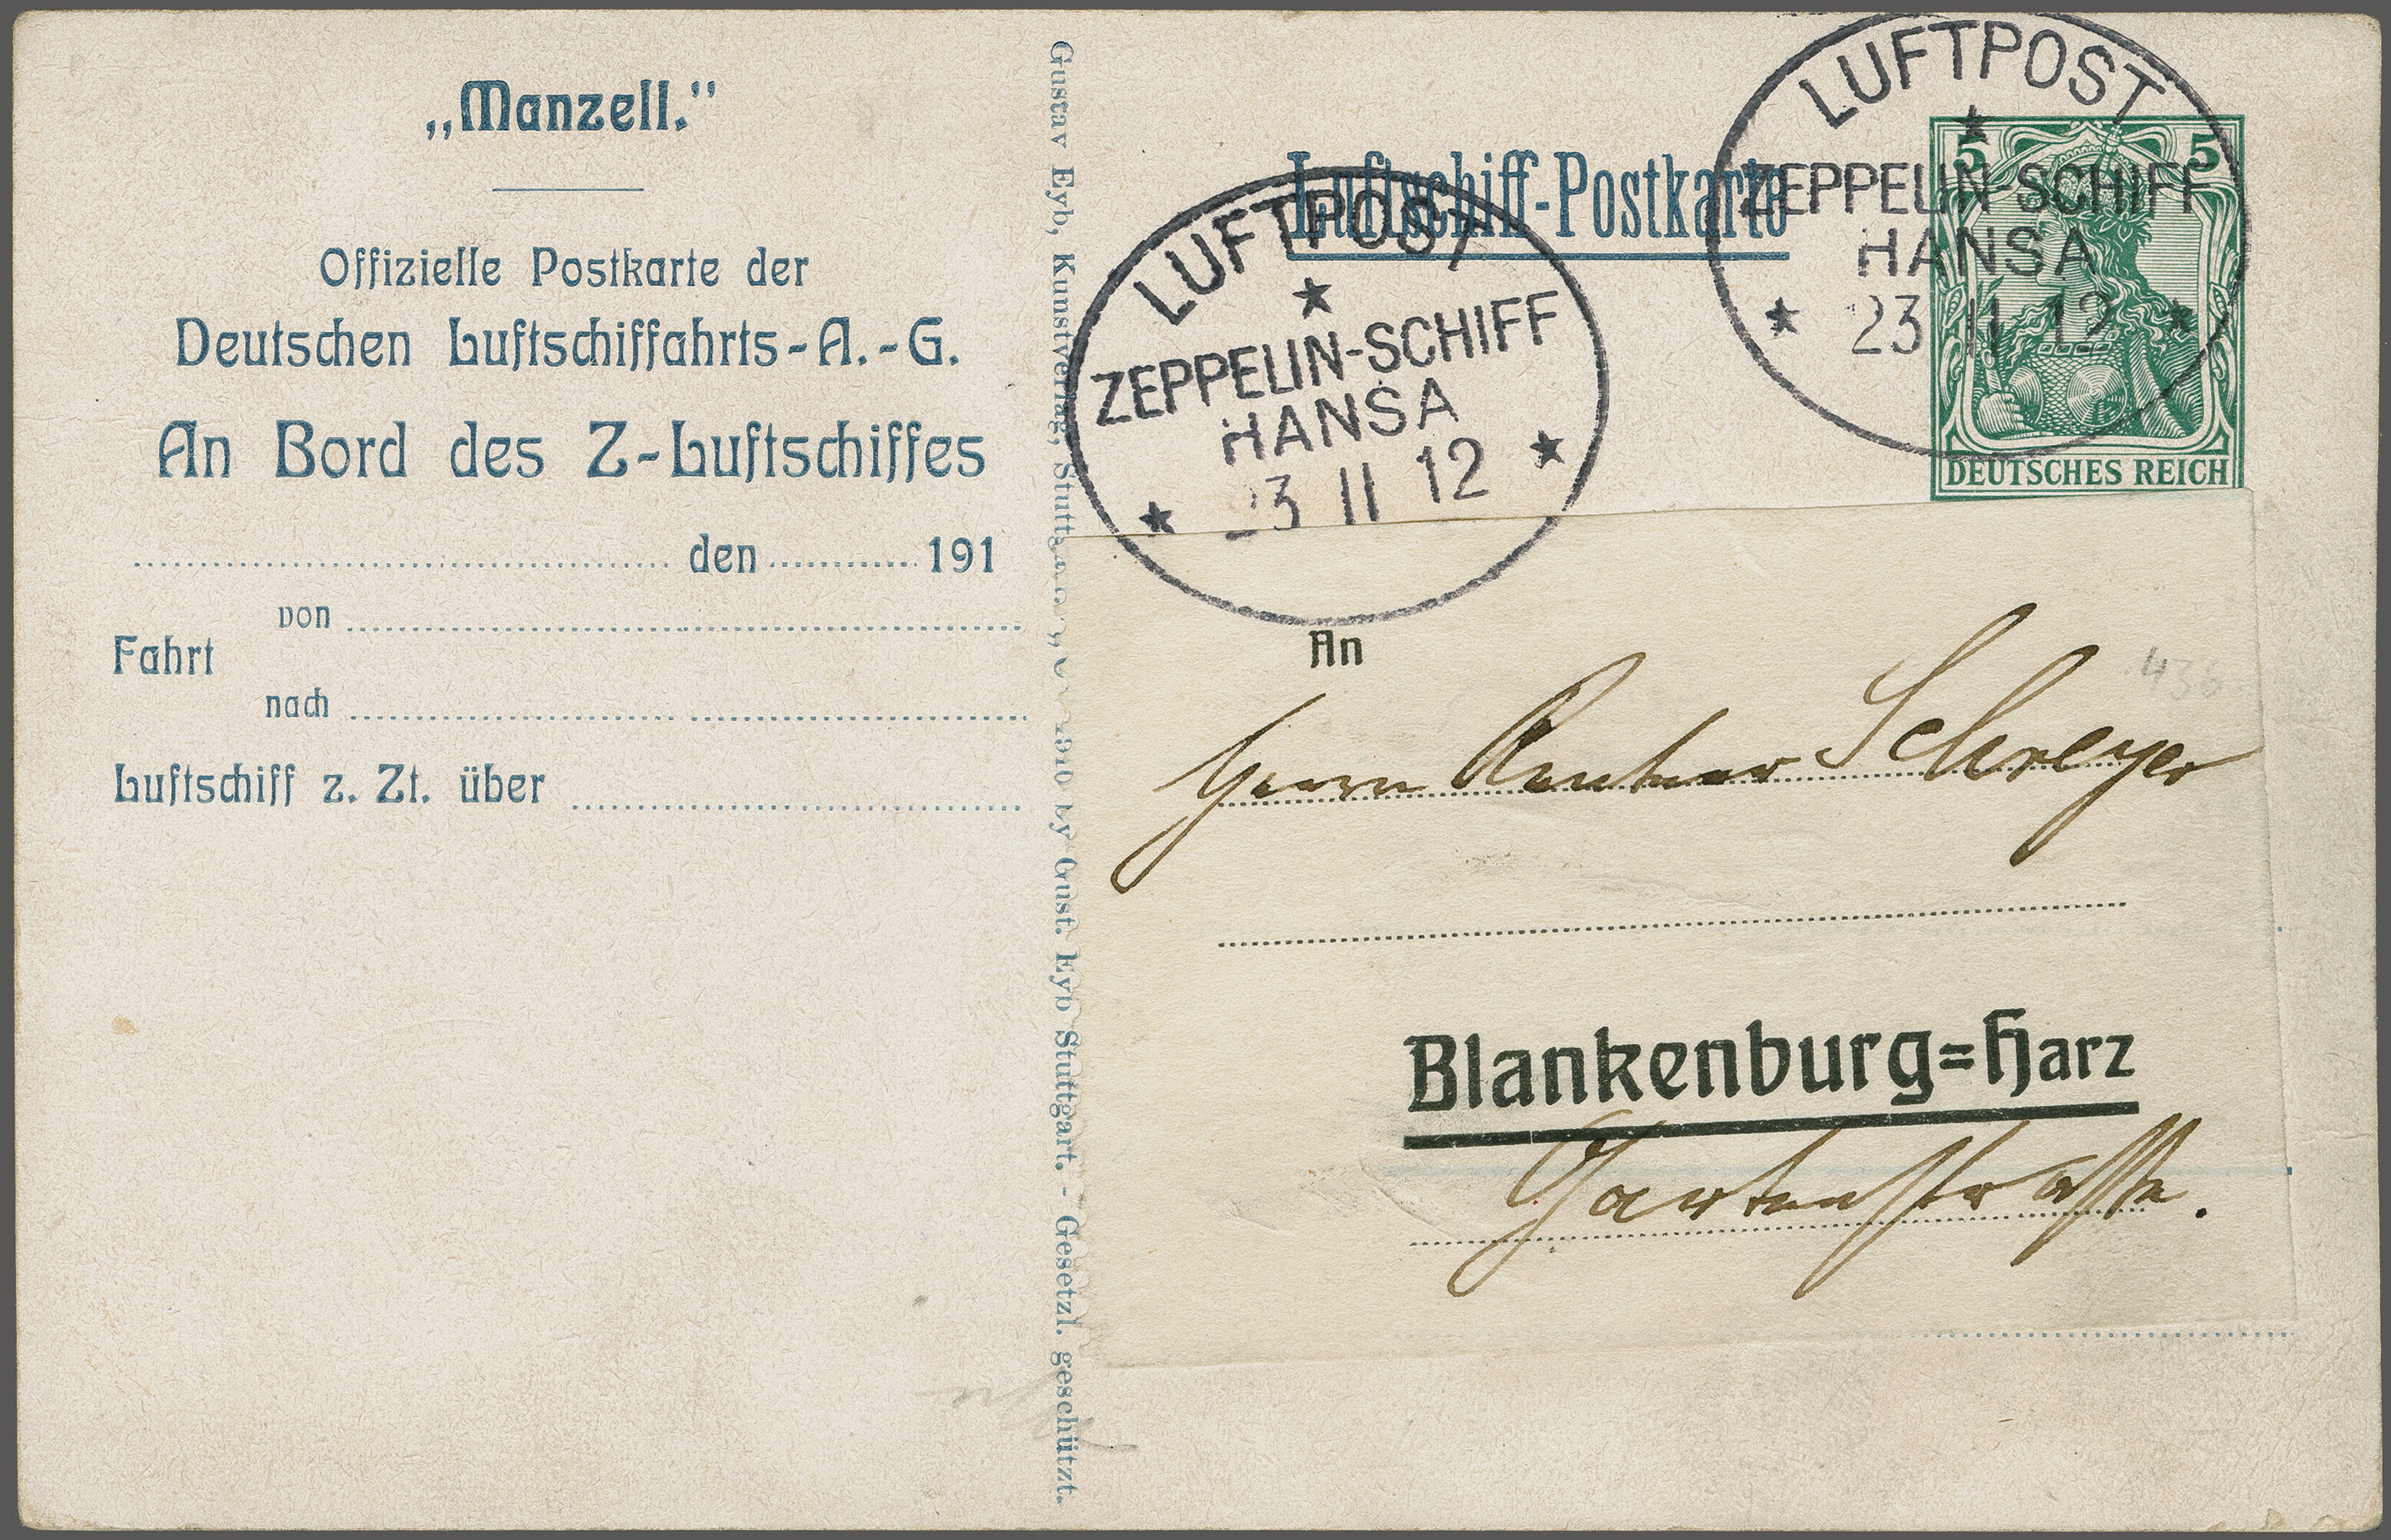 „Manzell.“
Offizielle Postkarte der
Deutschen Luftschiffahrts-A.-G.
An Bord des Z-Luftschiffes
den 191
von
Fahrt
nach
Luftschiff z. Zt. über
Gustav Eyb, Kunstverlag, 1910 by Gust. Eyb Stuttgart. - Gesetzl. geschützt.
Luftschiff-Postkarte
LUFTPOST
ZEPPELIN-SCHIFF
HANSA
23 11 12
LUFTPOST
ZEPPELIN-SCHIFF
HANSA
23 11 12
5 5
DEUTSCHES REICH
An
436
Herrn Rentner Schreyer
Blankenburg=Harz
Gartenstrasse.